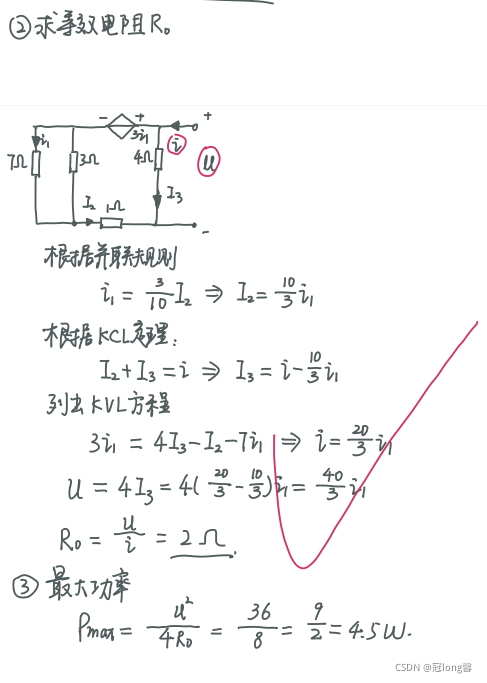 ② 求等效电阻 R₀
- + +
3i₁ i
7Ω i₁ 3Ω 4Ω u
I₂ 1Ω I₃
-
根据并联规则
i₁ = 3/10 I₂ ⇒ I₂ = 10/3 i₁
根据KCL原理:
I₂ + I₃ = i ⇒ I₃ = i - 10/3 i₁
列出KVL方程
3i₁ = 4I₃ - I₂ - 7i₁ ⇒ i = 20/3 i₁
u = 4I₃ = 4(20/3 - 10/3)i₁ = 40/3 i₁
R₀ = u/i = 2Ω.
③ 最大功率
Pmax = u²/4R₀ = 36/8 = 9/2 = 4.5W.
CSDN @冠long馨